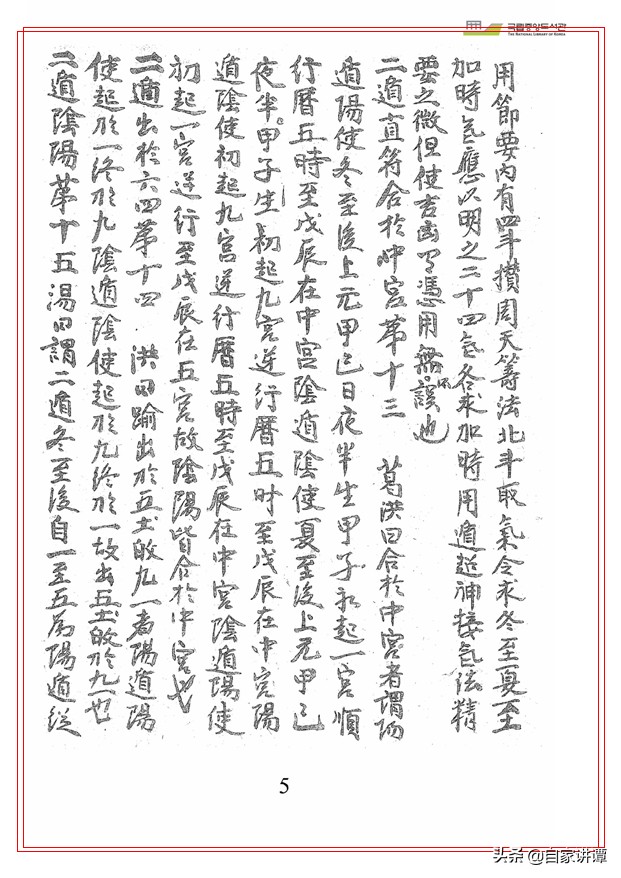 국립중앙도서관
THE NATIONAL LIBRARY OF KOREA
用節要内有四斗攅周天筭法北斗取氣令求冬至夏至
加時氣應以明之二十四氣各求加時用遁超神接氣法精
要之微但使吉凶可憑用無誤也
二遁直符合於中宫苐十三 葛洪曰合於中宫者謂陽
遁陽使冬至後上元甲己日夜半生甲子初起一宫順
行曆五時至戊辰在中宫陰遁陰使夏至後上元甲己
夜半甲子生初起九宫逆行曆五时至戊辰在中宫陽
遁陰使初起九宫逆行曆五時至戊辰在中宫陰遁陽使
初起一宫逆行至戊辰在五宫故陰陽皆合於中宫也
二遁出於六四苐十四 洪曰踰出於五土故九一者陽遁陽
使起於一终於九陰遁陰使起於九终於一故出五土故於九一也
二遁陰陽苐十五 湯曰謂二遁冬至後自一至五爲陽遁從
5
头条 @自家讲谭